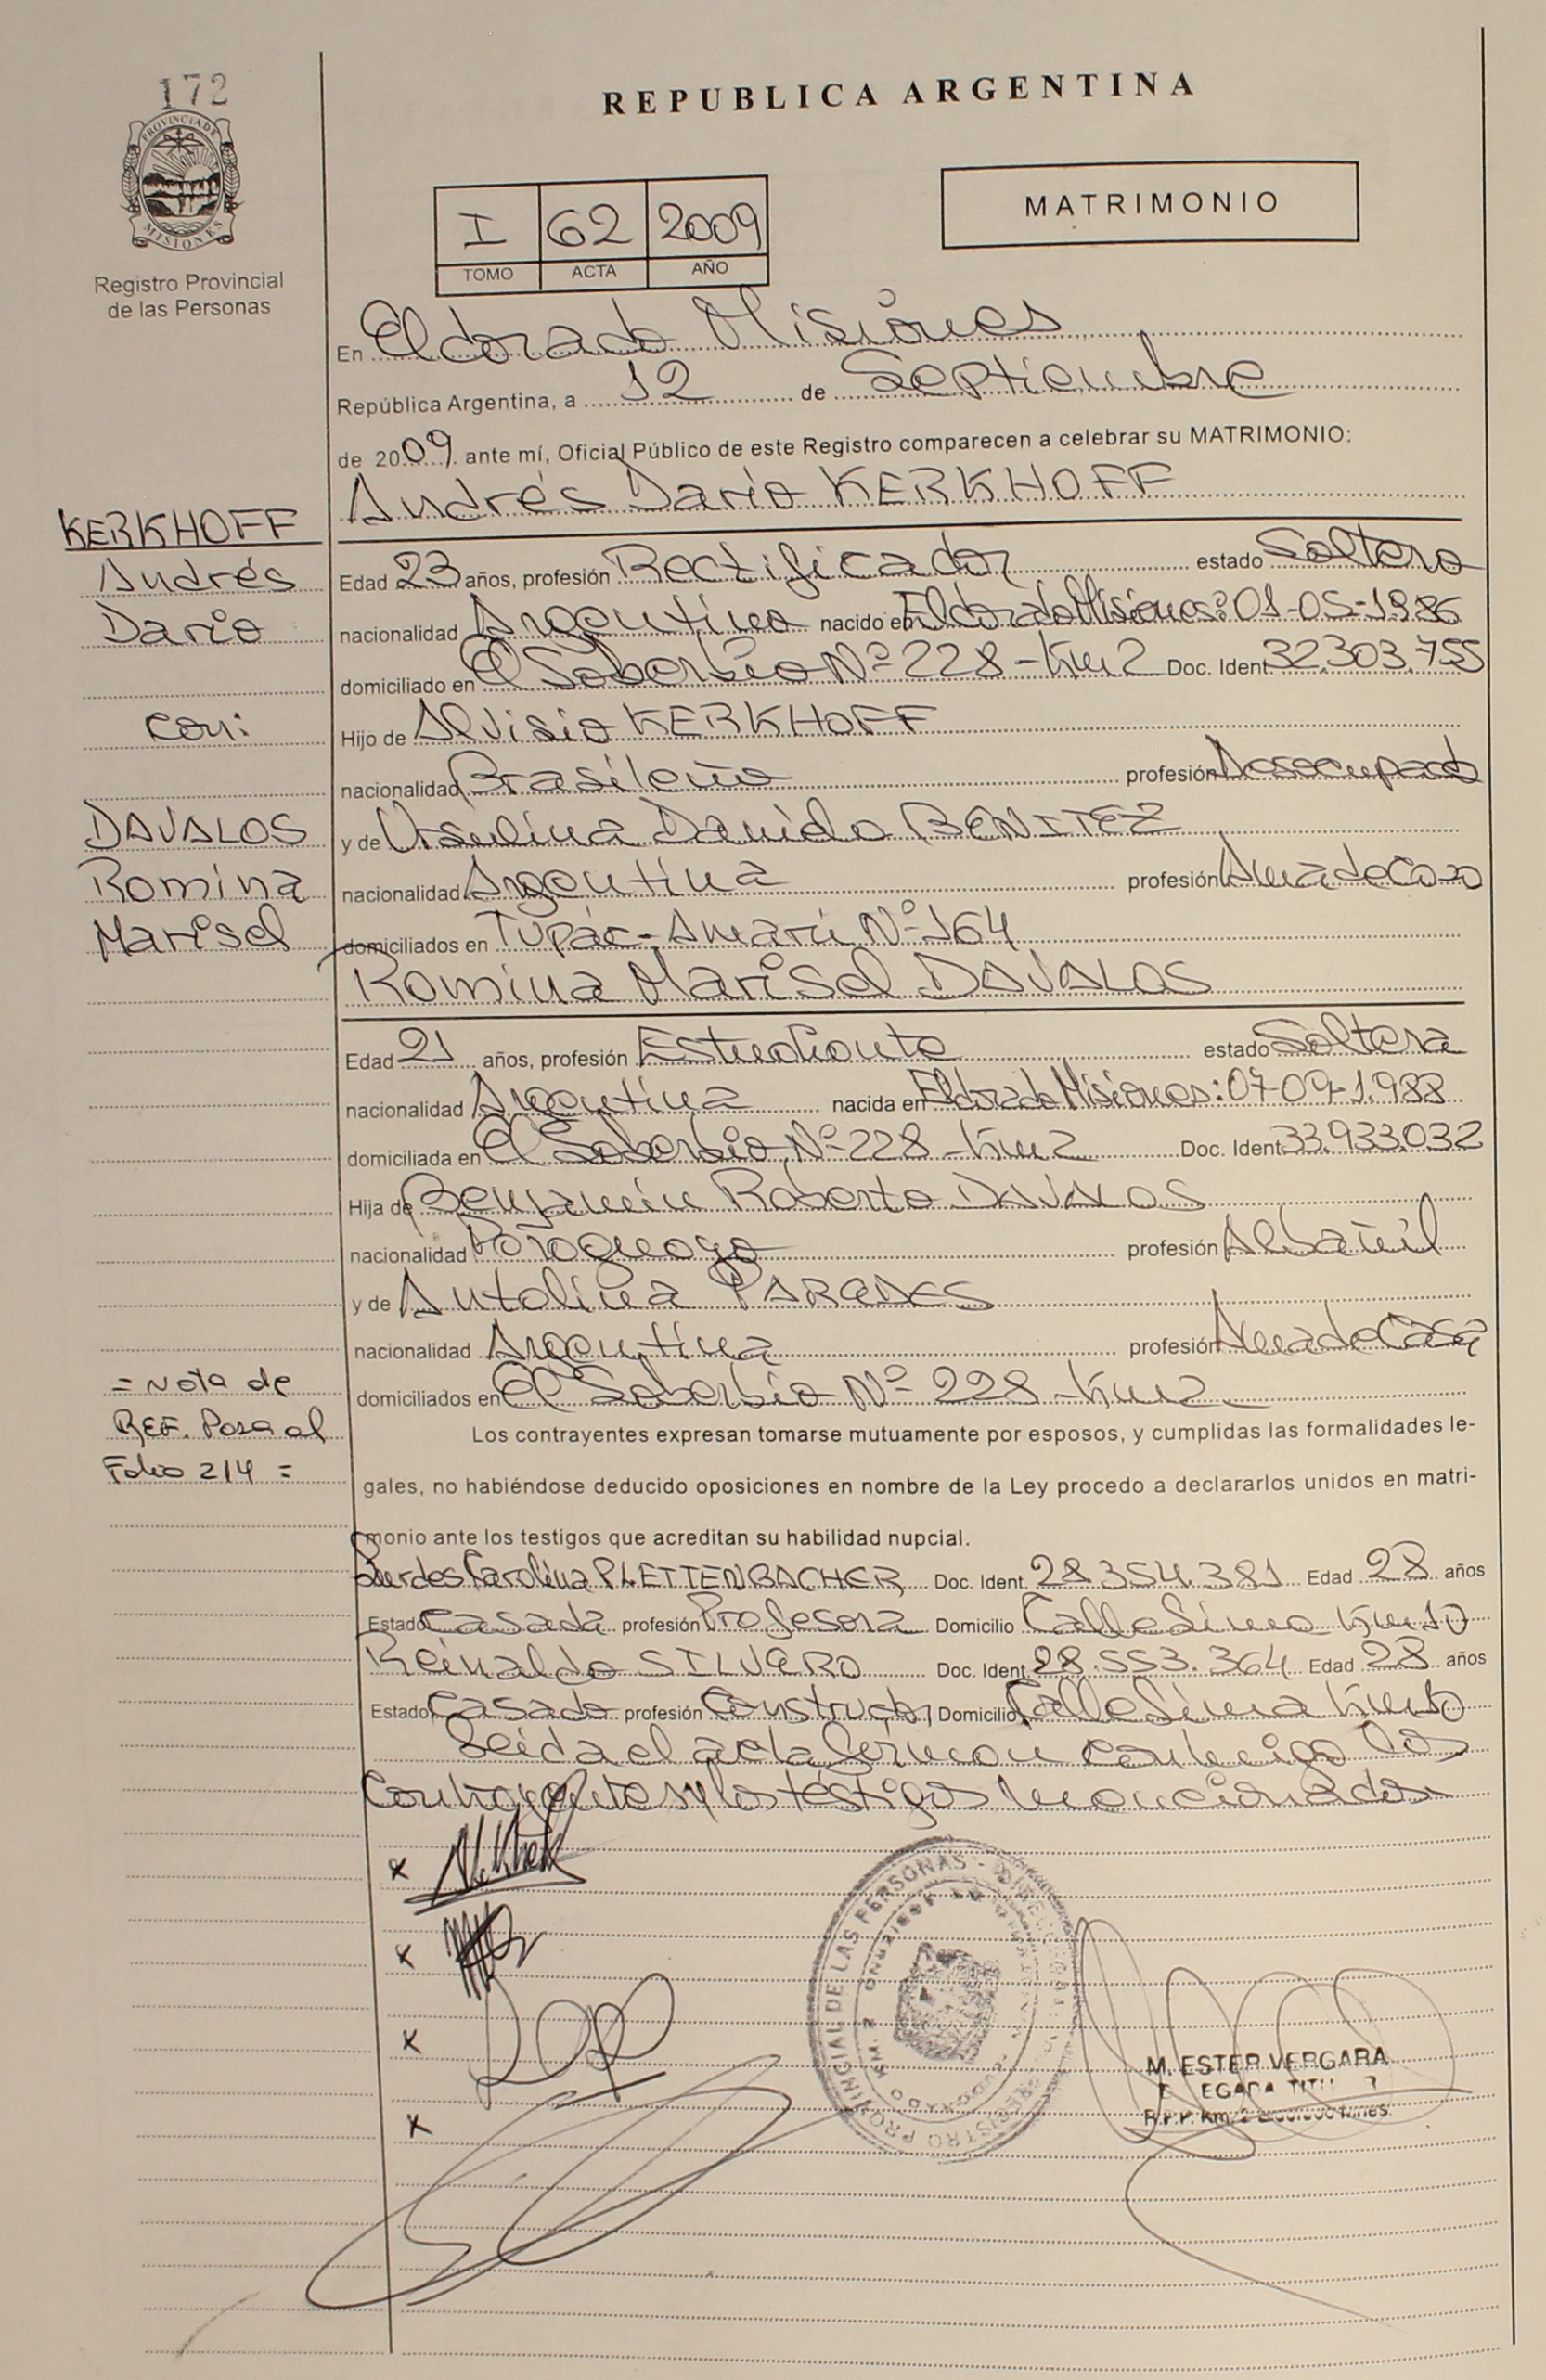 172
PROVINCIA DE
MISIONES
Registro Provincial
de las Personas
REPUBLICA ARGENTINA
MATRIMONIO
I 62 2009
TOMO ACTA AÑO
En Eldorado Misiones
República Argentina, a 12 de Septiembre
de 2009 ante mí, Oficial Público de este Registro comparecen a celebrar su MATRIMONIO:
Andrés Dario KERKHOFF
KERKHOFF
Andrés
Dario
con:
DAVALOS
Romina
Marisel
Edad 23 años, profesión Rectificador estado Soltero
nacionalidad Argentino nacido en Eldorado Misiones: 01-05-1.986
domiciliado en El Soberbio Nº 228 - Km 2 Doc. Ident. 32.303.755
Hijo de Alvisio KERKHOFF
nacionalidad Brasileño profesión Desocupado
y de Ursulina Danida BENITEZ
nacionalidad Argentina profesión Ama de Casa
domiciliados en Tupác-Amarú Nº 164
Romina Marisel DAVALOS
Edad 21 años, profesión Estudiante estado Soltera
nacionalidad Argentina nacida en Eldorado Misiones: 07-09-1.988
domiciliada en El Soberbio Nº 228 - Km 2 Doc. Ident. 33.933.032
Hija de Benjamín Roberto DAVALOS
nacionalidad Paraguayo profesión Albañil
y de Antolina PAREDES
nacionalidad Argentina profesión Ama de Casa
domiciliados en El Soberbio Nº 228 - Km 2
= Nota de
REF. Pasa al
Folio 214 =
Los contrayentes expresan tomarse mutuamente por esposos, y cumplidas las formalidades le-
gales, no habiéndose deducido oposiciones en nombre de la Ley procedo a declararlos unidos en matri-
monio ante los testigos que acreditan su habilidad nupcial.
Lurdes Carolina PLETTENBACHER Doc. Ident. 28.354.381 Edad 28 años
Estado Casada profesión Profesora Domicilio Calle Lima Km 10
Reinaldo SILVERO Doc. Ident. 28.553.364 Edad 28 años
Estado Casado profesión Constructor Domicilio Calle Lima Km 10
Leida el acta firman conmigo los
Contrayentes y los testigos mencionados
x
x
x
x
REGISTRO PROVINCIAL DE LAS PERSONAS
KM. 2 ELDORADO
M. ESTER VERGARA
R.P.P. Km. 2